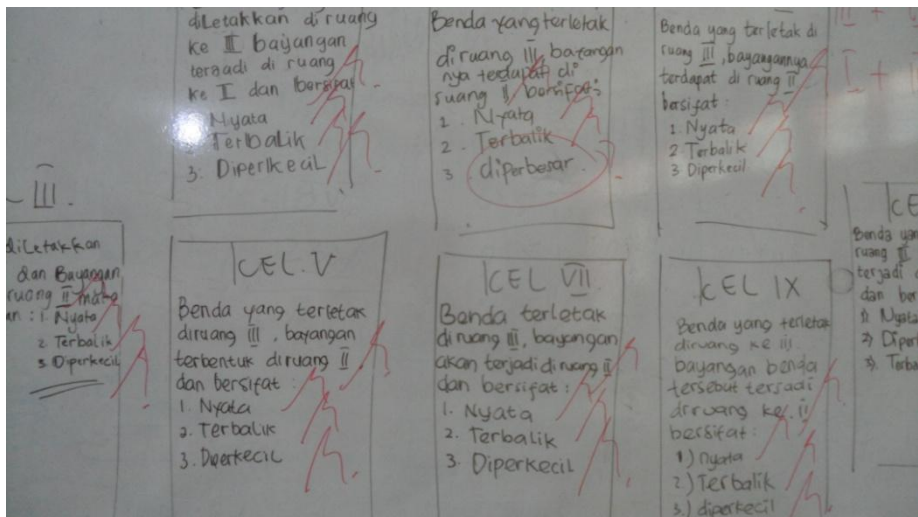 diLetakkan diruang
ke III bayangan
terjadi di ruang
ke I dan bersifat
Nyata
Terbalik
3. Diperkecil
Benda yang terletak
diruang III, bayangan
nya terdapat di
ruang II bersifat:
1. Nyata
2. Terbalik
3 diperbesar
Benda yang terletak di
ruang III, bayangannya
terdapat di ruang II
bersifat:
1. Nyata
2 Terbalik
3 Diperkecil
III +
I +
III.
diLetakkan
dan Bayangan
ruang II maka
1. Nyata
2 Terbalik
3 Diperkecil
KEL. V
Benda yang terletak
diruang III, bayangan
terbentuk diruang II
dan bersifat:
1. Nyata
2. Terbalik
3. Diperkecil
KEL VII
Benda terletak
diruang III, bayangan
akan terjadi diruang II
dan bersifat:
1. Nyata
2. Terbalik
3. Diperkecil
KEL IX
Benda yang terletak
diruang ke iii
bayangan benda
tersebut terjadi
diruang ke. ii
bersifat:
1.) nyata
2.) Terbalik
3.) diperkecil
KE
Benda yan
ruang III
terjadi
dan ber
1) Nyata
2) Diper
3) Terba